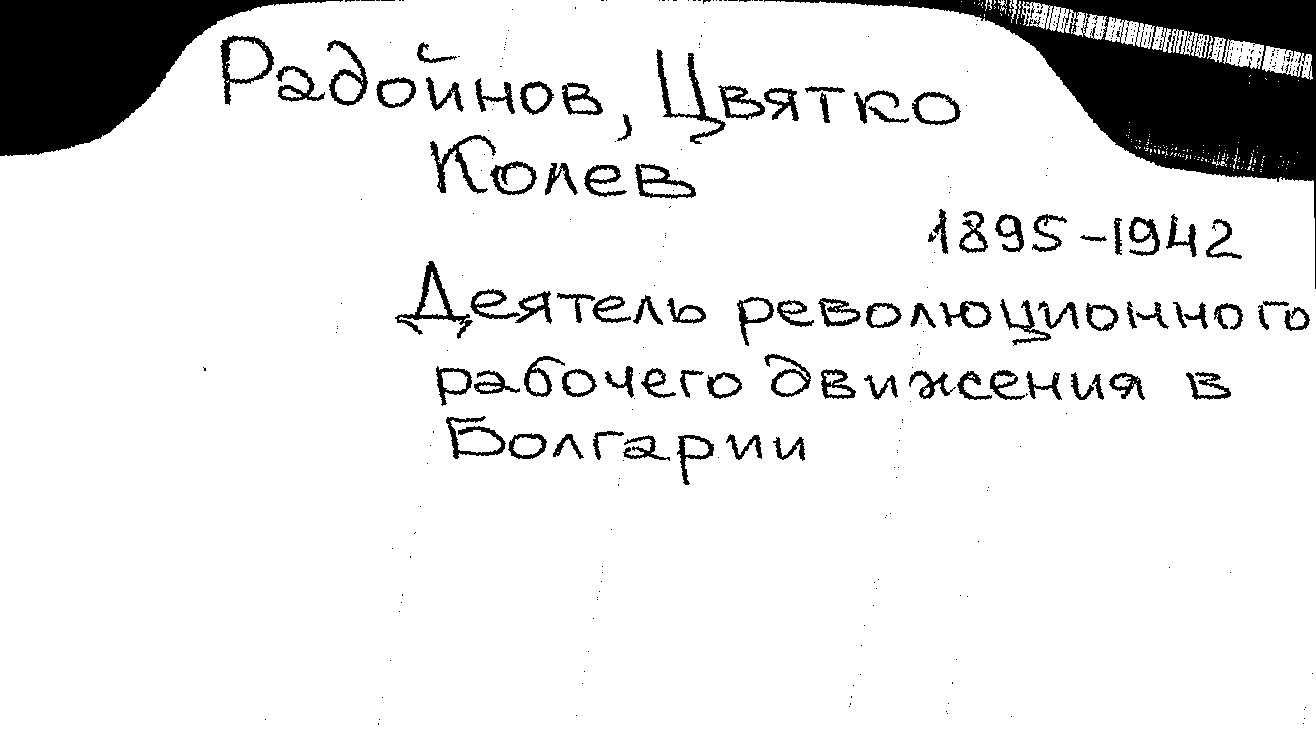 Радойнов, Цвятко
Колев
1895-1942
Деятель революционного
рабочего движения в
Болгарии